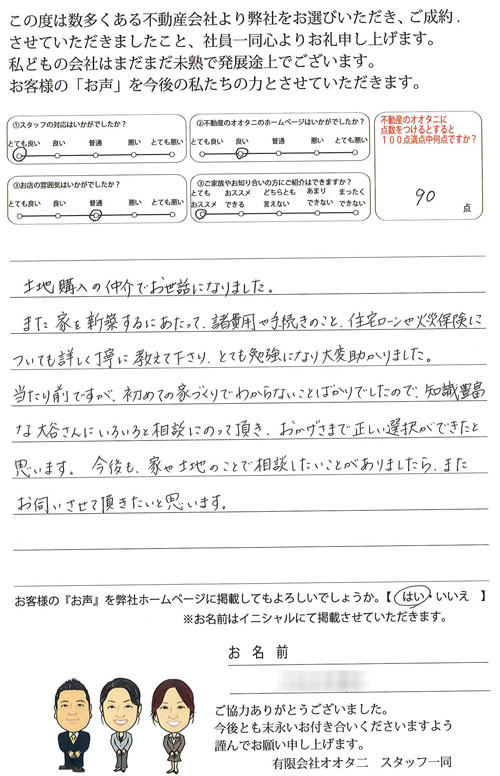 この度は数多くある不動産会社より弊社をお選びいただき、ご成約.
させていただきましたこと、社員一同心よりお礼申し上げます。
私どもの会社はまだまだ未熟で発展途上でございます。
お客様の「お声」を今後の私たちの力とさせていただきます。
①スタッフの対応はいかがでしたか?
とても良い 良い 普通 悪い とても悪い
②不動産のオオタニのホームページはいかがでしたか?
とても良い 良い 普通 悪い とても悪い
③お店の雰囲気はいかがでしたか?
とても良い 良い 普通 悪い とても悪い
③ご家族やお知り合いの方にご紹介はできますか?
とても どちらとも あまり まったく
おススメ できる 言えない できない できない
不動産のオオタニに
点数をつけるとすると
100点満点中何点ですか?
90
点
土地購入の仲介でお世話になりました。
また家を新築するにあたって、諸費用や手続きのこと、住宅ローンや火災保険に
ついても詳しく丁寧に教えて下さり、とても勉強になり大変助かりました。
当たり前ですが、初めての家づくりでわからないことばかりでしたので、知識豊富
な大谷さんにいろいろと相談にのって頂き、おかげさまで正しい選択ができたと
思います。 今後も、家や土地のことで相談したいことがありましたら、また
お伺いさせて頂きたいと思います。
お客様の『お声』を弊社ホームページに掲載してもよろしいでしょうか。【 はい・いいえ 】
※お名前はイニシャルにて掲載させていただきます。
お 名 前
ご協力ありがとうございました。
今後とも末永いお付き合いくださいますよう
謹んでお願い申し上げます。
有限会社オオタニ スタッフ一同